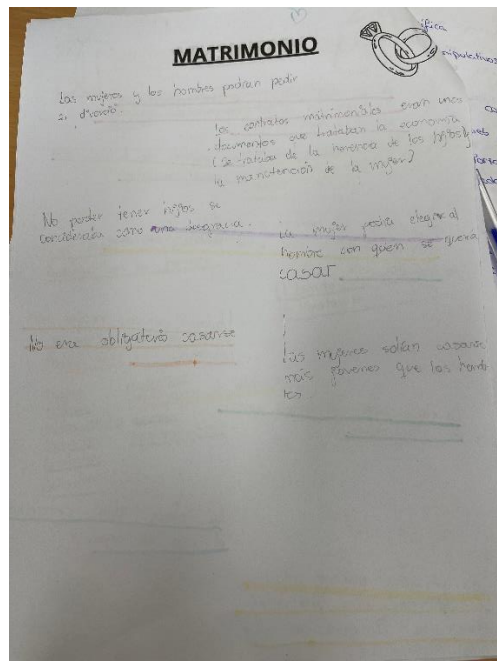 MATRIMONIO
Las mujeres y los hombres podían pedir
el divorcio.
Los contratos matrimoniales eran unos
documentos que trataban la economía
(Se trataba de la herencia de los hijos y
la manutención de la mujer)
No poder tener hijos se
consideraba como una desgracia.
La mujer podía elegir al
hombre con quen se quería
casar
No era obligatorio casarse
Las mujeres solían casarse
más jóvenes que los homb
res
ífica